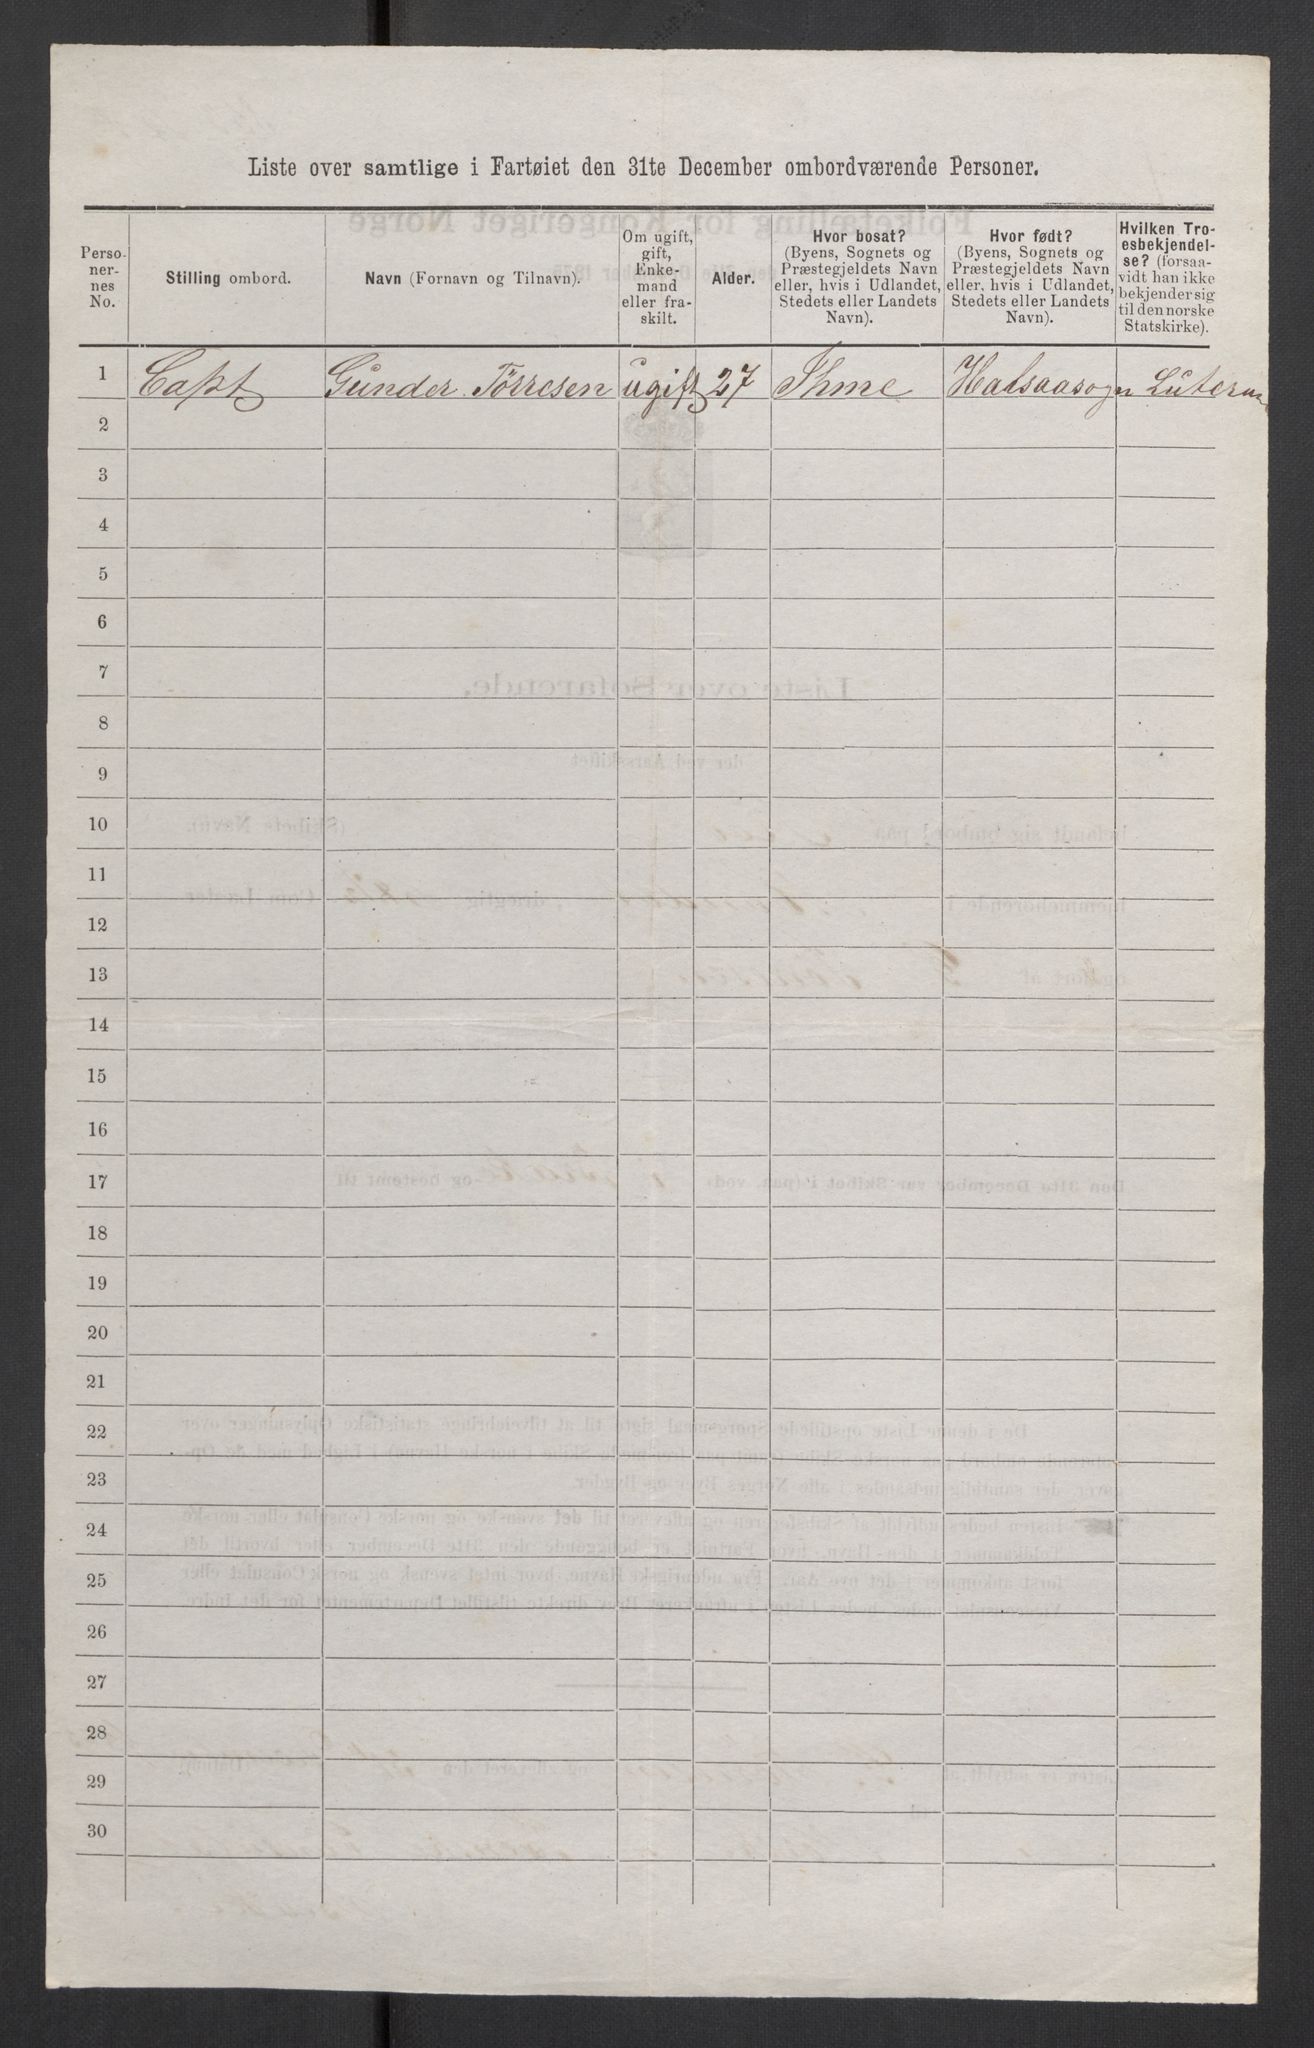 Liste over samtlige i Fartøiet den 31te December ombordværende Personer.
Perso-
ner-
nes
No.
Stilling ombord.
Navn (Fornavn og Tilnavn).
Om ugift,
gift,
Enke-
mand
eller fra-
skilt.
Alder.
Hvor bosat?
(Byens, Sognets og
Præstegjeldets Navn
eller, hvis i Udlandet,
Stedets eller Landets
Navn).
Hvor født?
(Byens, Sognets og
Præstegjeldets Navn
eller, hvis i Udlandet,
Stedets eller Landets
Navn).
Hvilken Tro-
esbekjendel-
se? (forsaa-
vidt han ikke
bekjender sig
til den norske
Statskirke).
1 Capt Gunder Törresen ugift 27 Ihme Halsaasogn
2
3
4
5
6
7
8
9
10
11
12
13
14
15
16
17
18
19
20
21
22
23
24
25
26
27
28
29
30